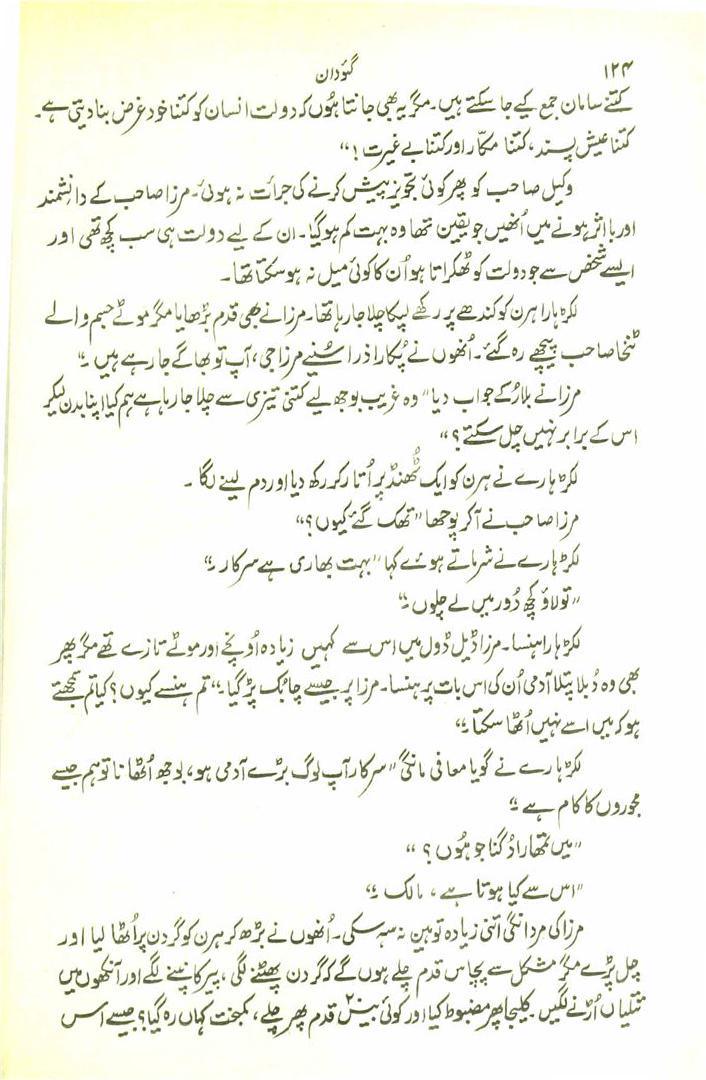 ۱۲۴
گئودان
کتنے سامان جمع کیے جا سکتے ہیں۔ مگر یہ بھی جانتا ہُوں کہ دولت انسان کو کتنا خود غرض بنا دیتی ہے۔
کتنا عیش پسند، کتنا مکّار اور کتنا بے غیرت !“
وکیل صاحب کو پھر کوئی تجویز پیش کرنے کی جرأت نہ ہوئی۔ مرزا صاحب کے دانشمند
اور با اثر ہونے میں اُنھیں جو یقین تھا وہ بہت کم ہو گیا۔ ان کے لیے دولت ہی سب کچھ تھی اور
ایسے شخص سے جو دولت کو ٹھکراتا ہو اُن کا کوئی میل نہ ہو سکتا تھا۔
لکڑہارا ہرن کو کندھے پر رکھے لپکا چلا جا رہا تھا۔ مرزا نے بھی قدم بڑھایا مگر موٹے جسم والے
ٹنخا صاحب پیچھے رہ گئے۔ اُنھوں نے پُکارا ذرا سُنیے مرزا جی، آپ تو بھاگے جا رہے ہیں ۔“
مرزا نے بلا رُکے جواب دیا ”وہ غریب بوجھ لیے کتنی تیزی سے چلا جا رہا ہے ہم کیا اپنا بدن لیکر
اس کے برابر نہیں چل سکتے؟“
لکڑہارے نے ہرن کو ایک ٹھُنڈ پر اُتار کر رکھ دیا اور دم لینے لگا ۔
مرزا صاحب نے آکر پوچھا ”تھک گئے کیوں؟“
لکڑہارے نے شرماتے ہوئے کہا ”بہت بھاری ہے سرکار ۔“
”تو لاؤ کچھ دُور میں لے چلوں ۔“
لکڑہارا ہنسا۔ مرزا ڈیل ڈول میں اس سے کہیں زیادہ اُونچے اور موٹے تازے تھے مگر پھر
بھی وہ دُبلا پتلا آدمی اُن کی اس بات پر ہنسا۔ مرزا پر جیسے چابُک پڑ گیا ۔“ تم ہنسے کیوں؟ کیا تم سمجھتے
ہو کہ میں اسے نہیں اُٹھا سکتا ۔“
لکڑہارے نے گویا معافی مانگی ”سرکار آپ لوگ بڑے آدمی ہو، بوجھ اُٹھانا تو ہم جیسے
مجوروں کا کام ہے ۔“
”میں تمھارا دُگنا جو ہُوں ؟ “
”اس سے کیا ہوتا ہے ، مالک ۔“
مرزا کی مردانگی اتنی زیادہ توہین نہ سہہ سکی۔ اُنھوں نے بڑھ کر ہرن کو گردن پر اُٹھا لیا اور
چل پڑے مگر مشکل سے پچاس قدم چلے ہوں گے کہ گردن پھٹنے لگی ، پیر کانپنے لگے اور آنکھوں میں
تتلیاں اُڑنے لگیں۔ کلیجا پھر مضبوط کیا اور کوئی بیس ۲۰ قدم پھر چلے ، کمبخت کہاں رہ گیا؟ جیسے اس